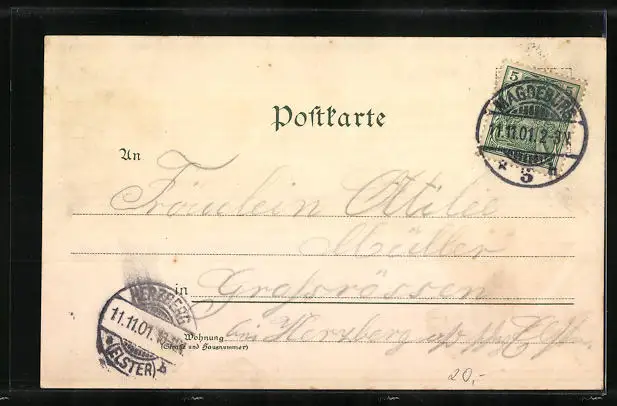 5 5
MAGDEBURG
11.11.01. 2-3N
* 5 h
Postkarte
An
Fräulein Otilie
Müller
in Grossrössen
bei Herzberg a/d Elst.
Wohnung
(Straße und Hausnummer)
HERZBERG
11.11.01.
*(ELSTER) b
20,-